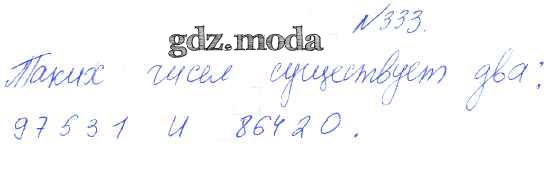 №333.
gdz.moda
Таких чисел существует два:
97531 и 86420.